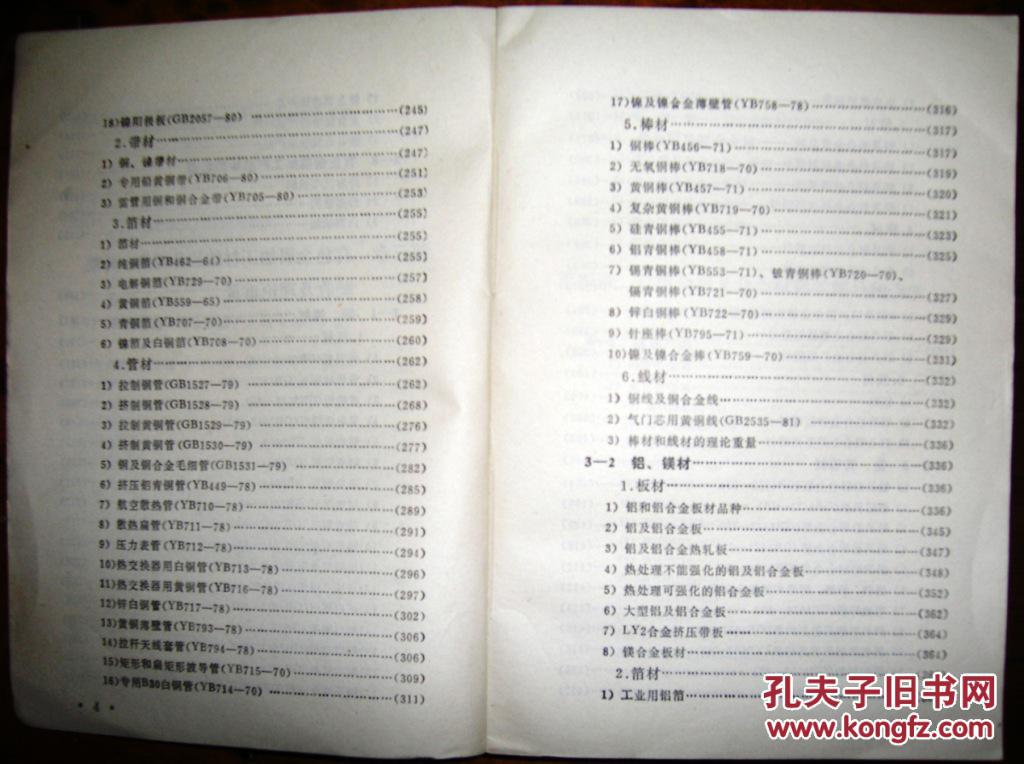 18)锡阳极板(GB2057—80) ……………………(245)
2.带材……………………(247)
1) 铜、镍带材……………………(247)
2) 专用铅黄铜带(YB706—80)……………………(251)
3) 雷管用铜和铜合金带(YB705—80)……………………(253)
3.箔材……………………(255)
1) 箔材……………………(255)
2) 纯铜箔(YB462—64)……………………(255)
3) 电解铜箔(YB729—70)……………………(257)
4) 黄铜箔(YB559—65)……………………(258)
5) 青铜箔(YB707—70)……………………(259)
6) 镍箔及白铜箔(YB708—70)……………………(260)
4.管材……………………(262)
1) 拉制铜管(GB1527—79) ……………………(262)
2) 挤制铜管(GB1528—79) ……………………(268)
3) 拉制黄铜管(GB1529—79)……………………(276)
4) 挤制黄铜管(GB1530—79)……………………(277)
5) 铜及铜合金毛细管(GB1531—79)……………………(282)
6) 挤压铝青铜管(YB449—78)……………………(285)
7) 航空散热管(YB710—78)……………………(289)
8) 散热扁管(YB711—78)……………………(291)
9) 压力表管(YB712—78)……………………(294)
10)热交换器用白铜管(YB713—78)……………………(296)
11)热交换器用黄铜管(YB716—78)……………………(297)
12)锌白铜管(YB717—78)……………………(302)
13)黄铜薄壁管(YB793—78)……………………(306)
14)拉杆天线套管(YB794—78)……………………(306)
15)矩形和扁矩形波导管(YB715—70)……………………(309)
16)专用B30白铜管(YB714—70)……………………(311)
• 4 •
17)镍及镍合金薄壁管(YB758—78)……………………(316)
5.棒材……………………(317)
1) 铜棒(YB456—71)……………………(317)
2) 无氧铜棒(YB718—70)……………………(319)
3) 黄铜棒(YB457—71)……………………(320)
4) 复杂黄铜棒(YB719—70)……………………(321)
5) 硅青铜棒(YB455—71)……………………(323)
6) 铝青铜棒(YB458—71)……………………(325)
7) 锡青铜棒(YB553—71)、铍青铜棒(YB720—70)、
镉青铜棒(YB721—70)……………………(327)
8) 锌白铜棒(YB722—70)……………………(329)
9) 针座棒(YB795—71)……………………(329)
10)镍及镍合金棒(YB759—70)……………………(331)
6.线材……………………(332)
1) 铜线及铜合金线……………………(332)
2) 气门芯用黄铜线(GB2535—81)……………………(332)
3) 棒材和线材的理论重量……………………(336)
3—2 铝、镁材……………………(336)
1.板材……………………(336)
1) 铝和铝合金板材品种……………………(336)
2) 铝及铝合金板……………………(345)
3) 铝及铝合金热轧板……………………(347)
4) 热处理不能强化的铝及铝合金板……………………(348)
5) 热处理可强化的铝合金板……………………(352)
6) 大型铝及铝合金板……………………(362)
7) LY2合金挤压带板……………………(364)
8) 镁合金板材……………………(364)
2.箔材……………………
1) 工业用铝箔……………………
孔夫子旧书网
www.kongfz.com